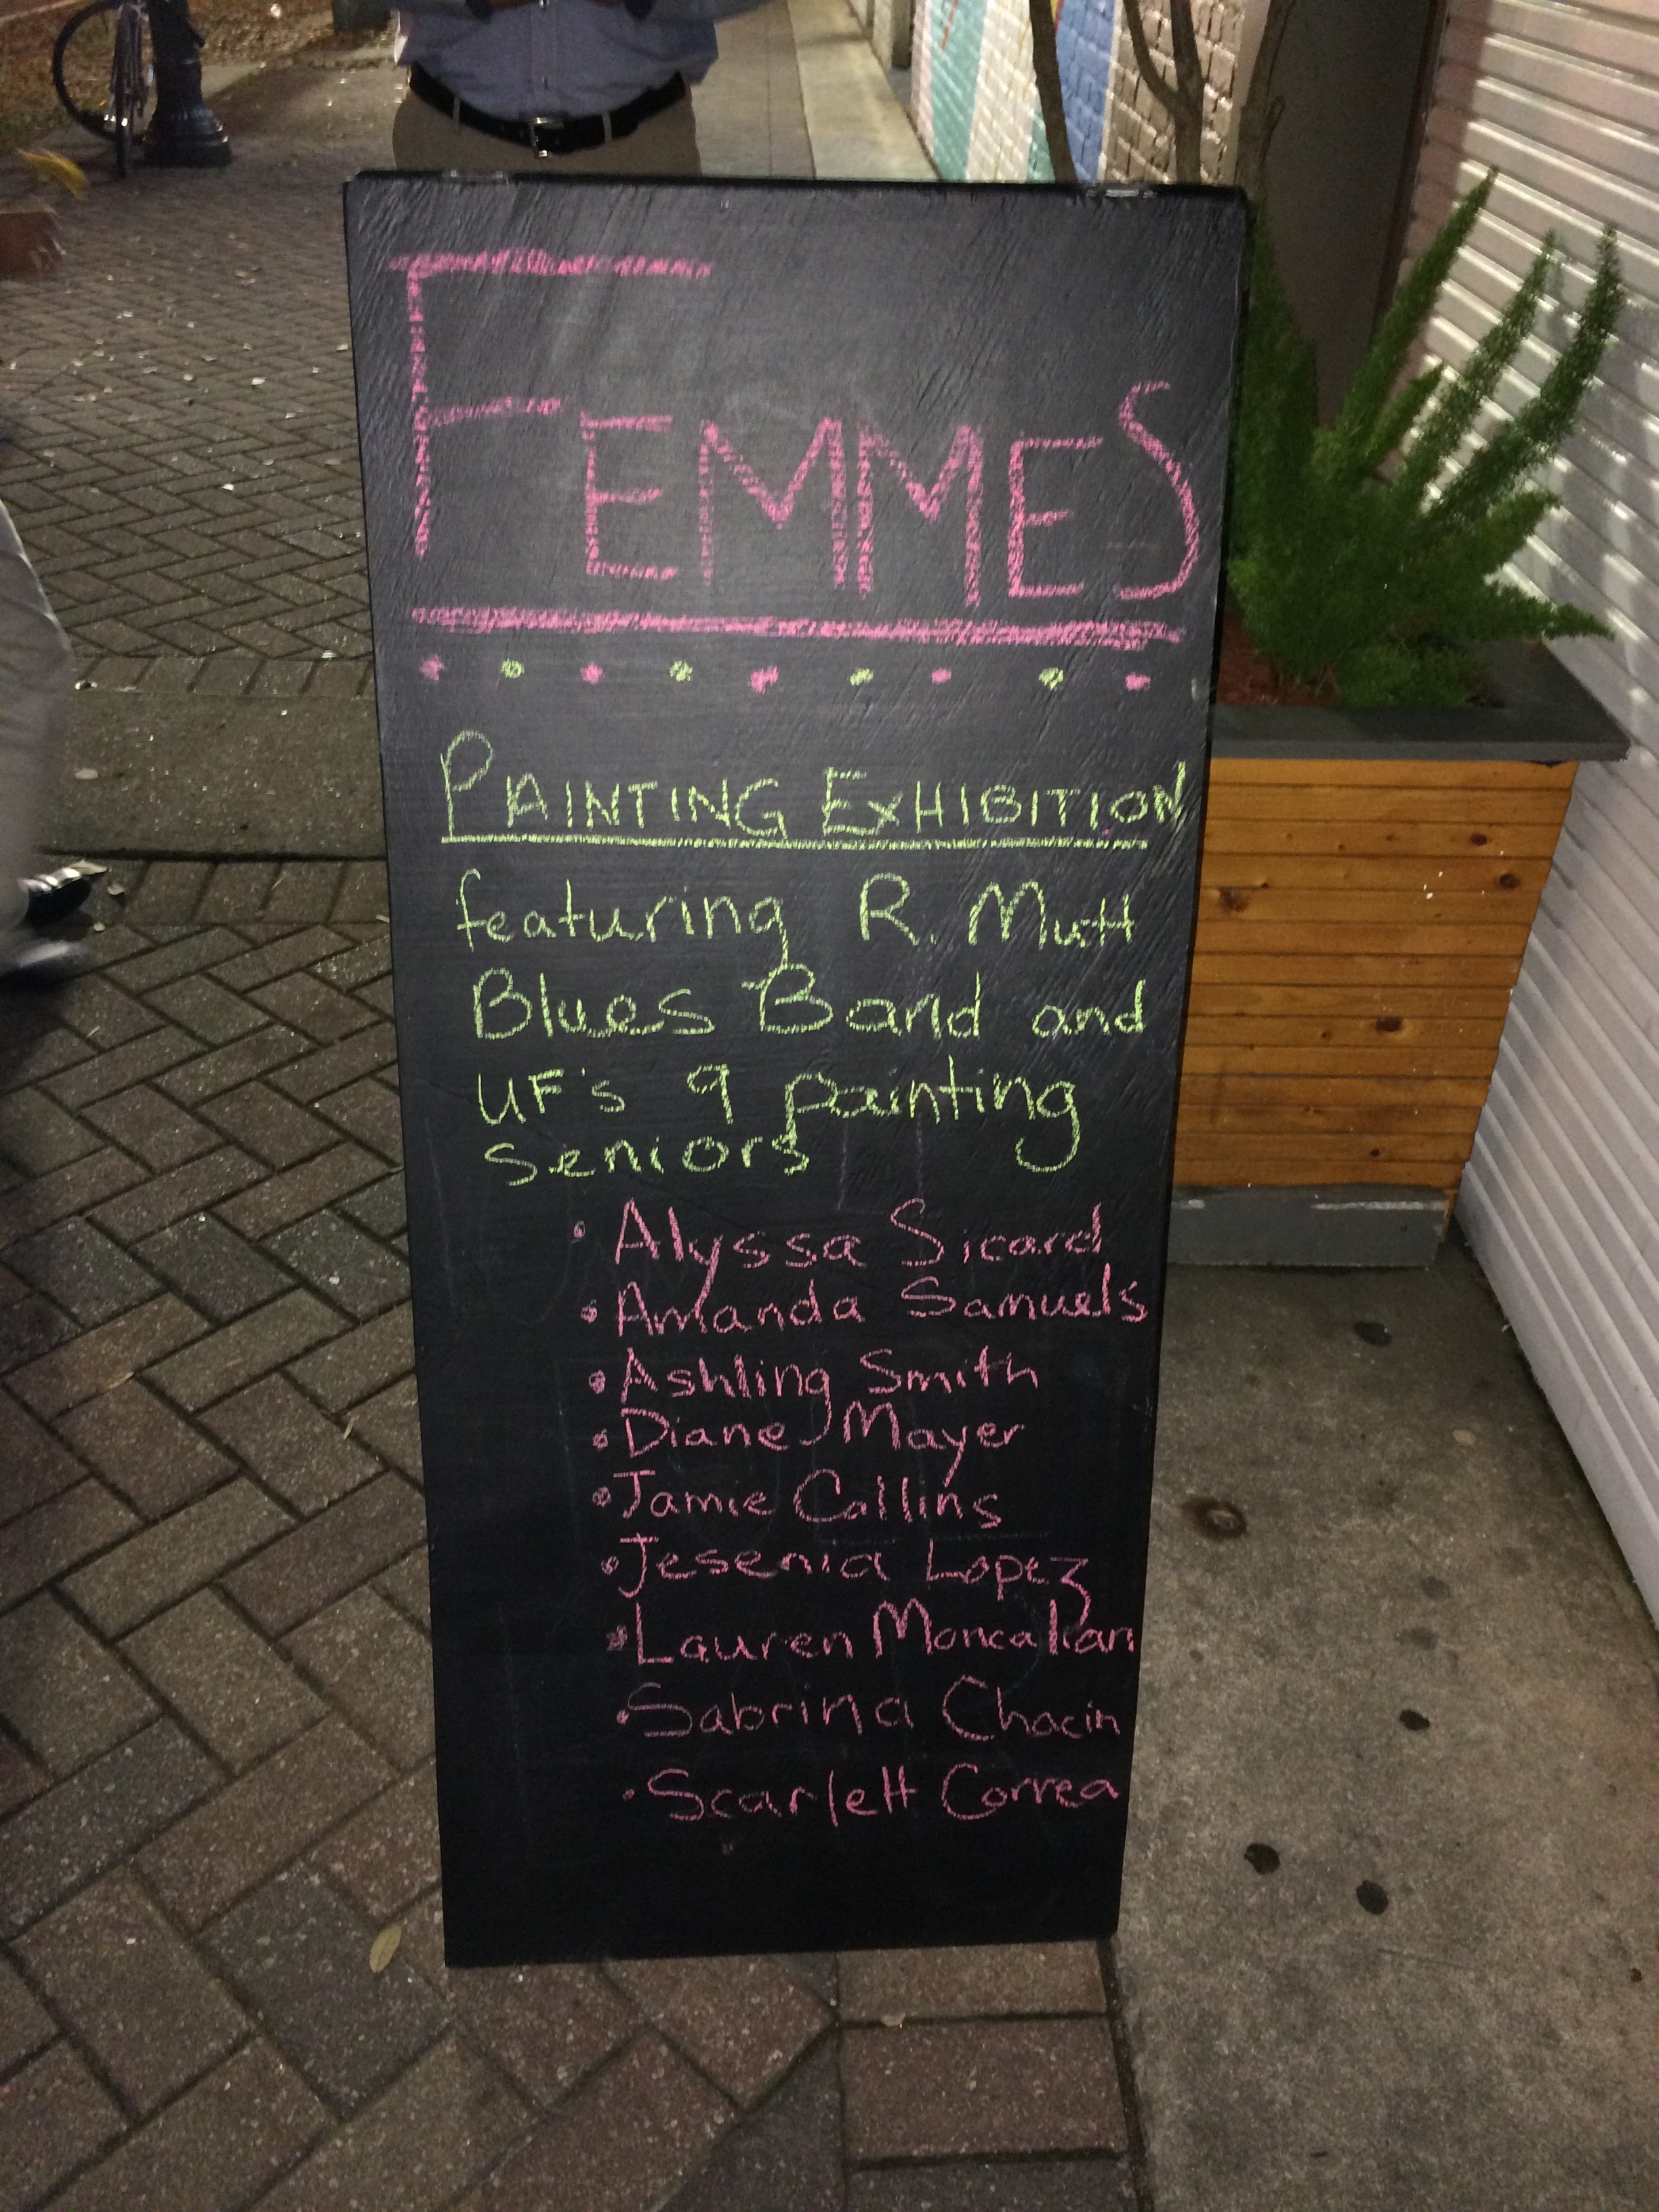 FEMMES
PAINTING EXHIBITION
featuring R. Mutt
Blues Band and
UF's 9 painting
seniors
• Alyssa Sicard
• Amanda Samuels
• Ashling Smith
• Diane Mayer
• Jamie Collins
• Jesenia Lopez
• Lauren Moncalian
• Sabrina Chacin
• Scarlett Correa